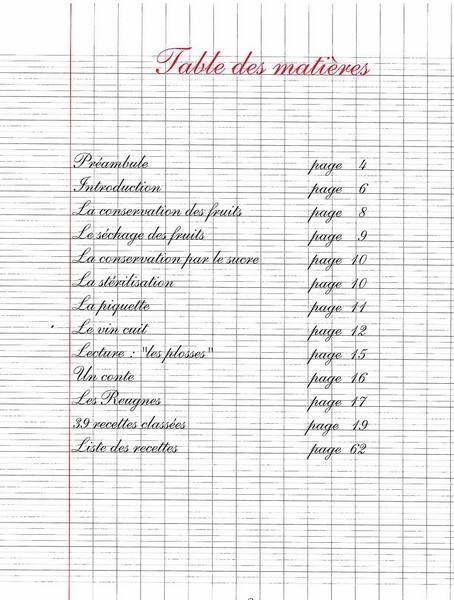 Table des matières
Préambule page 4
Introduction page 6
La conservation des fruits page 8
Le séchage des fruits page 9
La conservation par le sucre page 10
La stérilisation page 10
La piquette page 11
Le vin cuit page 12
Lecture : "les plosses" page 15
Un conte page 16
Les Reugnes page 17
39 recettes classées page 19
Liste des recettes page 62